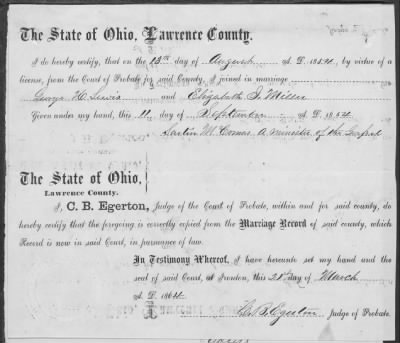 The State of Ohio, Lawrence County.
I do hereby certify, that on the 13th day of August A. D. 1854, by virtue of a
license, from the Court of Probate for said County, I joined in marriage
George W. Lewis and Elizabeth J. Miller
Given under my hand, this 11 day of September A. D. 1854
Sartin M. Comas A minister of the Gospel
The State of Ohio,
Lawrence County.
I, C. B. Egerton, Judge of the Court of Probate, within and for said county, do
hereby certify that the foregoing is correctly copied from the Marriage Record of said county, which
Record is now in said Court, in pursuance of law.
In Testimony Whereof, I have hereunto set my hand and the
seal of said Court, at Ironton, this 28th day of March
A. D. 1864.
C. B. Egerton, Judge of Probate.